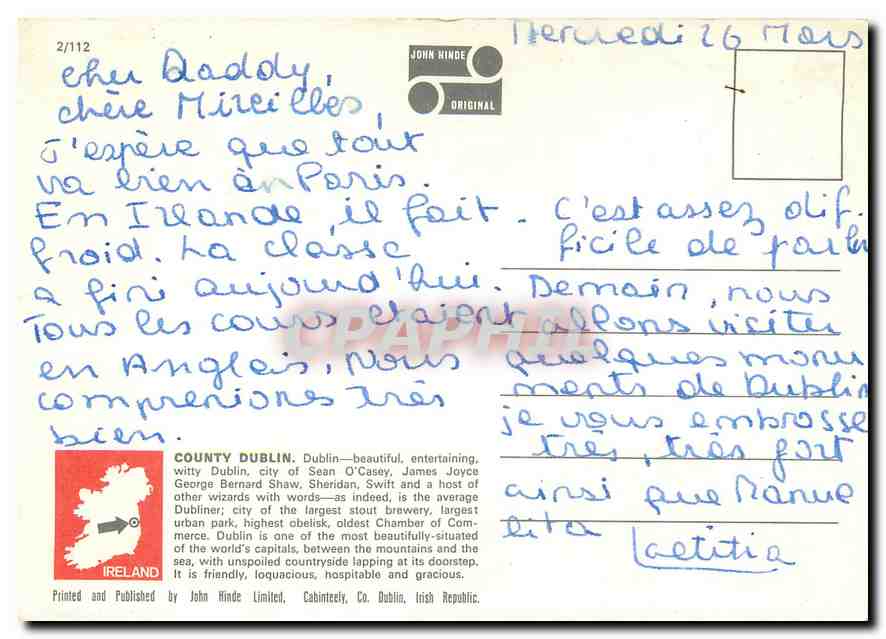 Mercredi 26 Mars
2/112
JOHN HINDE
ORIGINAL
cher Daddy,
chère Mireilles,
J'espère que tout
va bien à Paris.
En Irlande, il fait
froid. La classe
a fini aujourd'hui.
Tous les cours etaient
en Anglais, Nous
compreniones très
bien.
- C'est assez dif.
ficile de parler
Demain, nous
allons visiter
quelques monu
ments de Dublin
je vous embrasse
très, très fort
ainsi que Manue
lita
Laetitia
CPAPHIL
COUNTY DUBLIN. Dublin—beautiful, entertaining,
witty Dublin, city of Sean O'Casey, James Joyce
George Bernard Shaw, Sheridan, Swift and a host of
other wizards with words—as indeed, is the average
Dubliner; city of the largest stout brewery, largest
urban park, highest obelisk, oldest Chamber of Com-
merce. Dublin is one of the most beautifully-situated
of the world's capitals, between the mountains and the
sea, with unspoiled countryside lapping at its doorstep.
It is friendly, loquacious, hospitable and gracious.
IRELAND
Printed and Published by John Hinde Limited, Cabinteely, Co. Dublin, Irish Republic.